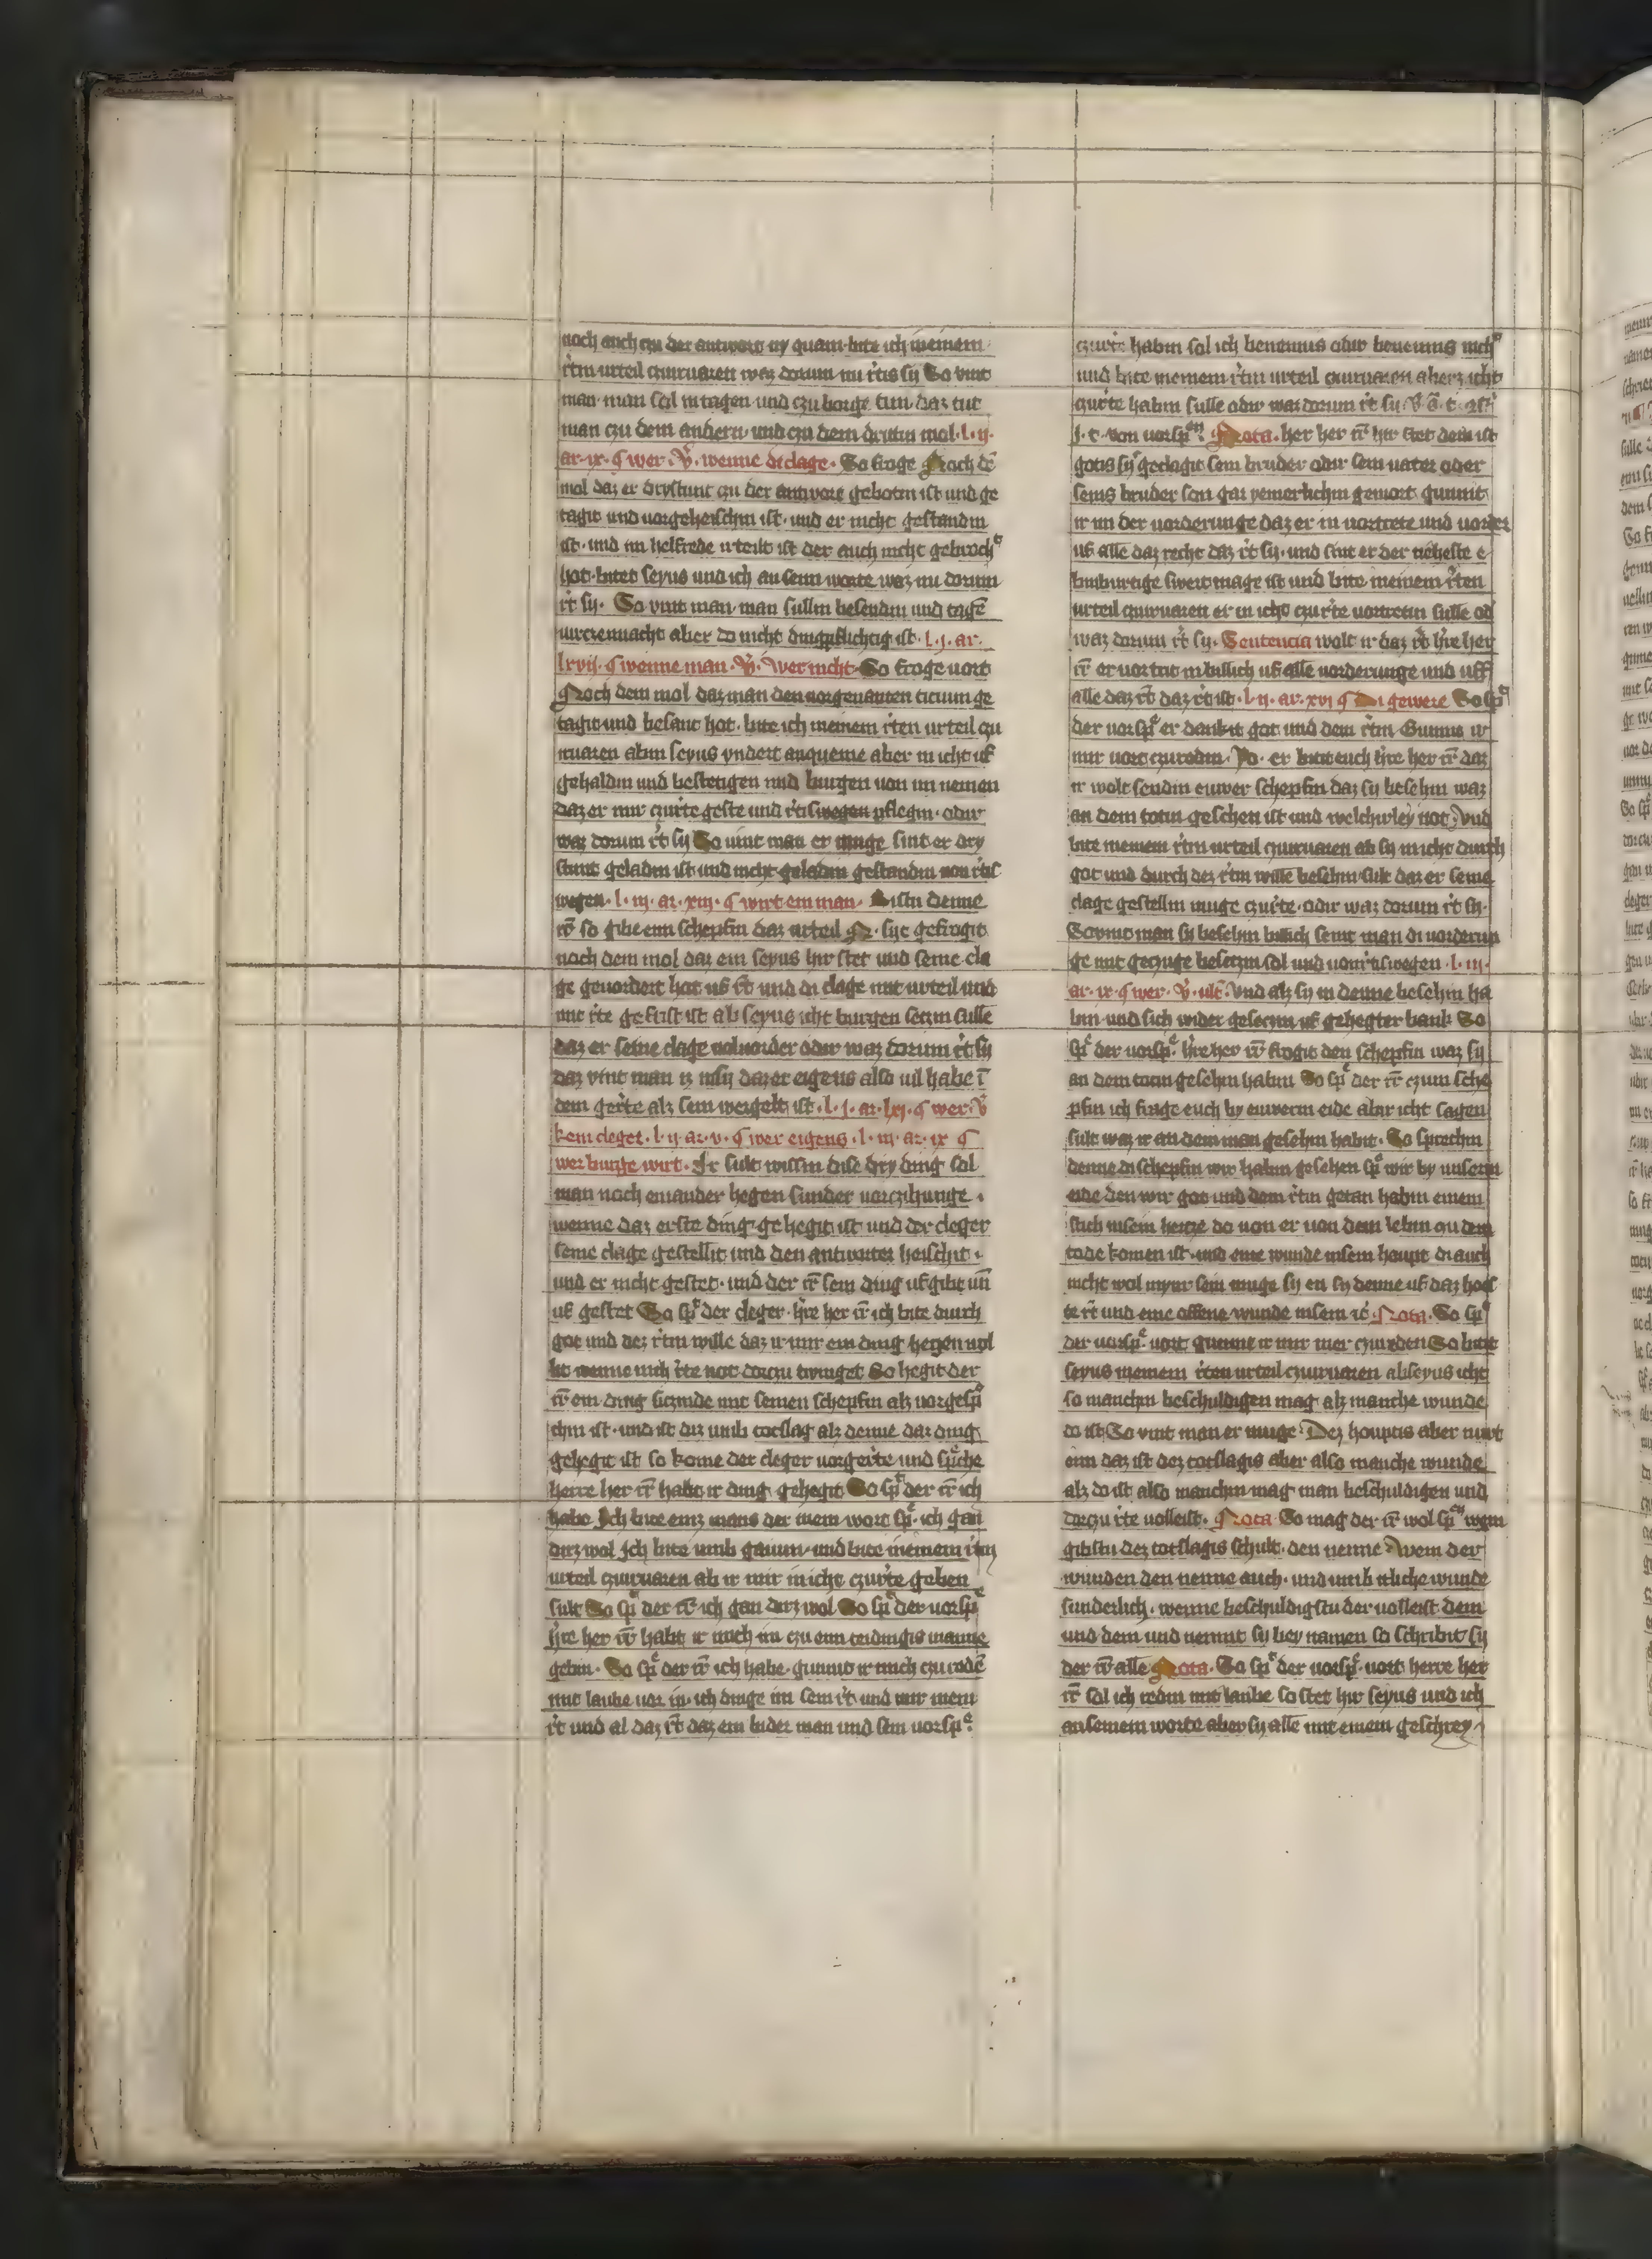 noch auch czu der antwort ny quam bite ich meinem
r̃tin urteil czuiruaren waz dorum nu r̃tis sy So vint
man man sal in tagen und czu borge tun daz tut
man czu dem andern und czu dem dritin mol l. ij.
ar. ix. ¶ wer. v̾. wenne di clage. So froge Noch dē
mol daz er drystunt czu der antwort gebotin ist und ge
tagit und vorgeheischin ist und er nicht gestandin
ist und im helfrede irteilt ist der auch nicht gebroch
hot bitet seyus und ich an seim worte waz nu dorum
r̃t sy. So vint man man sullin besendin und tagē
uirczennacht aber do nicht dingpflichtig ist. l. j. ar.
lxvij. ¶ wenne man. v̾. wer nicht So froge vort
Noch dem mol daz man den vorgenanten ticium ge
tagit und besant hot bite ich meinem r̃ten urteil czu
iruaren abin seyus yndert anqueme aber in icht uf
gehaldin und bestetigen und burgen von im nemen
daz er mir czur̃te geste und r̃tiswegen pflegin odir
waz dorum r̃t sy So vint man er muge sint er dry
stunt geladin ist und nicht geladin gestandin von r̃tis
wegen. l. iij. ar. xiij. ¶ wirt ein man. Bistu denne
r̃r so gibe ein schepfin daz urteil N. syt gefrogit
noch dem mol daz ein seyus hir stet und seine cla
ge gevordert hot uf r̃t und di clage mit urteil und
mit r̃te gefrist ist ab seyus icht burgen seczin sulle
daz er seine clage volvorder odir waz dorum r̃t sy
daz vint man iz insy daz er eigens also vil habe ī
dem ger̃te alz sein wergelt ist. l. j. ar. lxj. ¶ wer v̾
kein cleget. l. ij. ar. v. ¶ wer eigens. l. iij. ar. ix ¶
wer burge wirt. Ir sult wissin dise dry ding sal
man noch einander hegen sunder vorczihunge.
wenne daz erste ding gehegit ist und der cleger
seine clage gestellit und den antworter heischit.
und er nicht gestet. und der r̃r sein ding ufgibt uñ
uf gestet So sp̃ der cleger. hr̃e her r̃r ich bite durch
got und dez r̃tin wille daz ir mir ein ding hegen wol
let wenne mich r̃te not dorczu twinget So hegit der
r̃r ein ding siczinde mit seinen schepfin alz vorgesp̃
chin ist. und ist diz umb totslag alz denne daz ding
gehegit ist so kome der cleger vorger̃te und sp̃che
herre her r̃r habt ir ding gehegit So sp̃ der r̃r ich
habe Ich bite einz mans der mein wort sp̃. ich gan
dirz wol Ich bite umb gauun. und bite meinem r̃tin
urteil czuiruaren ab ir mir in icht czur̃te geben
sult So sp̃ der r̃r ich gan dirz wol So sp̃ der vorsp̃
hr̃e her r̃r habt ir mich im czu eim teidingis manne
gebin. So sp̃ der r̃r ich habe. gunnit ir mich czu redē
mit laube vor in. ich dinge im sein r̃t und mir mein
r̃t und al daz r̃t daz ein bider man und sein vorsp̃
czur̃te habin sal ich benennis odir benennis nich
und bite meinem r̃tin urteil czuiruaren aberz icht
czur̃te habin sulle odir waz dorum r̃t sy.
j. c. von vorsp̃en. Nota. her her r̃r hir stet dem ist
gotis sy geclagit sein bruder odir sein vater oder
seins bruder son gar yemerlichin gemort gunnit
ir im der vorderunge daz er in vortrete und vorder
uf alle daz recht daz r̃t sy. und sint er der neheste e
binburtige swertmage ist und bite meinem r̃ten
urteil czuiruaren er in icht czur̃te vortretin sulle od
waz dorum r̃t sy. Sentencia wolt ir daz r̃t hr̃e her
r̃r er vortrit in billich uf alle vorderunge und uff
alle daz r̃t daz r̃t ist. l. ij. ar. xvj ¶ Di gewere So sp̃
der vorsp̃ er dankit got und dem r̃tin Gunnit ir
mir vort czuredin. Jo. er bitit euch hr̃e her r̃r daz
ir wolt sendin euwer schepfin daz sy besehin waz
an dem totin geschen ist und welchirley not. Und
bite meinem r̃tin urteil czuiruaren ab sy in icht durch
got und durch dez r̃tin wille besehin sult daz er seine
clage gestellin muge czur̃te. odir waz dorum r̃t sy.
So vint man sy besehin billich seint man di vorderun
ge mit geczuge beseczin sol und von r̃tiswegen. l. iij.
ar. ix. ¶ wer. v̾. ult̄. Und alz sy in denne besehin ha
bin und sich wider geseczin uf gehegter bank So
sp̃ der vorsp̃. hr̃e her r̃r frogit den schepfin waz sy
an dem totin gesehin habin So sp̃ der r̃r czum sche
pfin ich frage euch by euwerm eide abir icht sagen
sult waz ir an dem man gesehin habit. So sprechin
denne di schepfin wir habin gesehen sp̃ wir by unserm
eide den wir got und dem r̃tin getan habin einem
stich inseim hercze do von er von dem lebin czu dem
tode komen ist. und eine wunde inseim houpt di auch
nicht wol mynr sein muge sy en sy denne uf daz hoes
te r̃t und eine offene wunde inseim Nota. So sp̃
der vorsp̃. vort gunnit ir mir mer czureden So bitit
seyus meinem r̃ten urteil czuiruaren ab seyus icht
so manchin beschuldigen mag alz manche wunde
do ist So vint man er muge. Dez houptis aber nuwt
ein daz ist dez totslagis aber also manche wunde
alz do ist also manchin mag man beschuldigen und
dorczu r̃te volleist. Nota So mag der r̃r wol sp̃en wem
gibstu dez totslagis schult. den nenne. wem der
wunden den nenne auch. und umb itliche wunde
sunderlich. wenne beschuldigstu der volleist dem
und dem und nennit sy bey namen so schribit sy
der r̃r alle Nota. So sp̃ der vorsp̃. vort herre her
r̃r sol ich redin mit laube so stet hir seyus und ich
an seinem worte aber sy alle mit einem geschrey